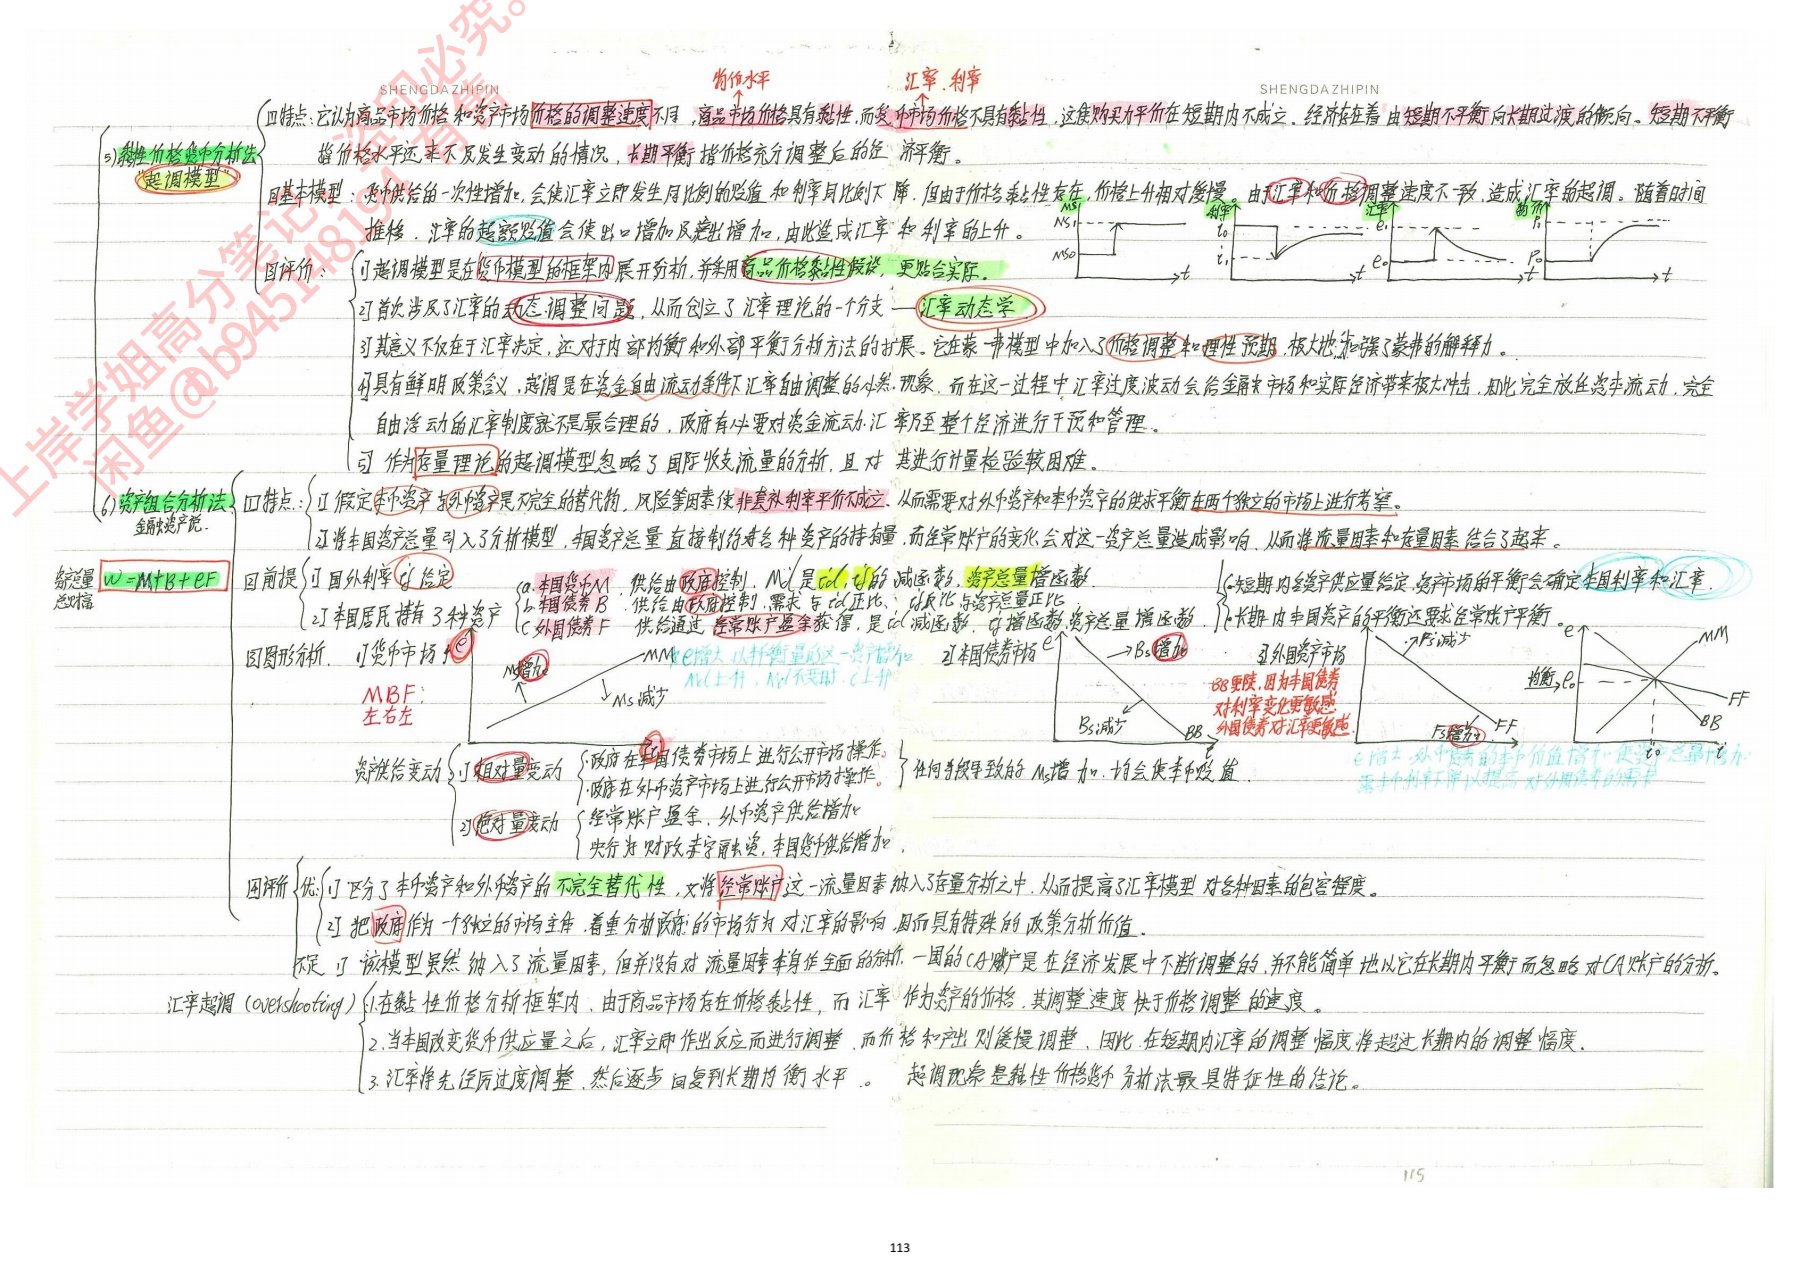 上岸学姐高分笔记，盗印必究。
闲鱼@b94514819 有售
SHENGDAZHIPIN
SHENGDAZHIPIN
物价水平
汇率.利率
5)黏性价格货币分析法
"超调模型"
①特点:它认为商品市场价格和资产市场价格的调整速度不同,商品市场价格具有黏性,而货币市场价格不具有黏性,这使购买力平价在短期内不成立。经济存在着由短期不平衡向长期过渡的倾向。短期不平衡
指价格水平还来不及发生变动的情况,长期平衡指价格充分调整后的经济平衡。
②基本模型:货币供给的一次性增加,会使汇率立即发生同比例的贬值和利率同比例下降,但由于价格黏性存在,价格上升相对缓慢。由于汇率和价格调整速度不一致,造成汇率的超调。随着时间
推移,汇率的超额贬值会使出口增加及产出增加,由此造成汇率和利率的上升。
Ms
MS₁
MS₀
t
利率
i₀
i₁
t
汇率
e₁
e₀
t
物价
P₁
P₀
t
③评价:
1)超调模型是在货币模型的框架内展开分析,并采用商品价格黏性假设,更贴合实际。
2)首次涉及了汇率的动态调整问题,从而创立了汇率理论的一个分支——汇率动态学
3)其意义不仅在于汇率决定,还对于内部均衡和外部平衡分析方法的扩展。它在蒙-弗模型中加入了价格调整和理性预期,极大地加强了蒙弗的解释力。
4)具有鲜明政策含义,超调是在资金自由流动条件下汇率自由调整的必然现象,而在这一过程中,汇率过度波动会给金融市场和实际经济带来极大冲击,因此完全放任资本流动,完全
自由浮动的汇率制度就不是最合理的,政府有必要对资金流动.汇率乃至整个经济进行干预和管理。
5)作为存量理论的超调模型忽略了国际收支流量的分析,且对其进行计量检验较困难。
6)资产组合分析法
金融资产说.
①特点:
1)假定本币资产与外币资产是不完全的替代物,风险等因素使非套补利率平价不成立.从而需要对外币资产和本币资产的供求平衡在两个独立的市场上进行考察。
2)将本国资产总量引入了分析模型,本国资产总量直接制约着各种资产的持有量,而经常账户的变化会对这一资产总量造成影响,从而将流量因素和存量因素结合了起来。
资产总量
W=M+B+eF
②前提
1)国外利率if给定
2)本国居民持有3种资产
a.本国货币M,供给由政府控制,Md是id,if的减函数.资产总量增函数.
b.本国债券B,供给由政府控制,需求与id正比、if反比与资产总量正比
c.外国债券F 供给通过经常账户盈余获得,是id减函数,if增函数,资产总量增函数
短期内各资产供应量给定,资产市场的平衡会确定本国利率和汇率.
长期内本国资产的平衡还要求经常账户平衡。
③图形分析.
1)货币市场
e
Ms增加
MM
Ms减少
i
MBF:
左右左
Md上升
2)本国债券市场
e
Bs增加
Bs减少
BB
i
3)外国资产市场
BB更陡,因为本国债券
对利率变化更敏感
外国债券对汇率更敏感
Fs减少
Fs增加
FF
i
e
均衡→e₀
MM
FF
BB
i₀
i
资产供给变动
1)相对量变动
·政府在本国债券市场上进行公开市场操作。
·政府在外币资产市场上进行公开市场操作。
任何手段导致的Ms增加.均会使本币贬值
2)绝对量变动
经常账户盈余,外币资产供给增加
央行为财政赤字融资,本国货币供给增加.
④评价
优:
1)区分了本币资产和外币资产的不完全替代性,又将经常账户这一流量因素纳入了存量分析之中,从而提高了汇率模型对各种因素的包容程度。
2)把政府作为一个独立的市场主体,着重分析政府的市场行为对汇率的影响,因而具有特殊的政策分析价值.
不足
1)该模型虽然纳入了流量因素,但并没有对流量因素本身作全面的分析.一国的CA账户是在经济发展中不断调整的,并不能简单地以它在长期内平衡而忽略对CA账户的分析。
汇率超调(overshooting)
1.在黏性价格分析框架内,由于商品市场存在价格黏性,而汇率作为资产的价格,其调整速度快于价格调整的速度。
2.当本国改变货币供应量之后,汇率立即作出反应而进行调整,而价格和产出则缓慢调整,因此,在短期内汇率的调整幅度将超过长期内的调整幅度.
3.汇率将先经历过度调整,然后逐步回复到长期均衡水平。超调现象是黏性价格货币分析法最具特征性的结论。
115
113